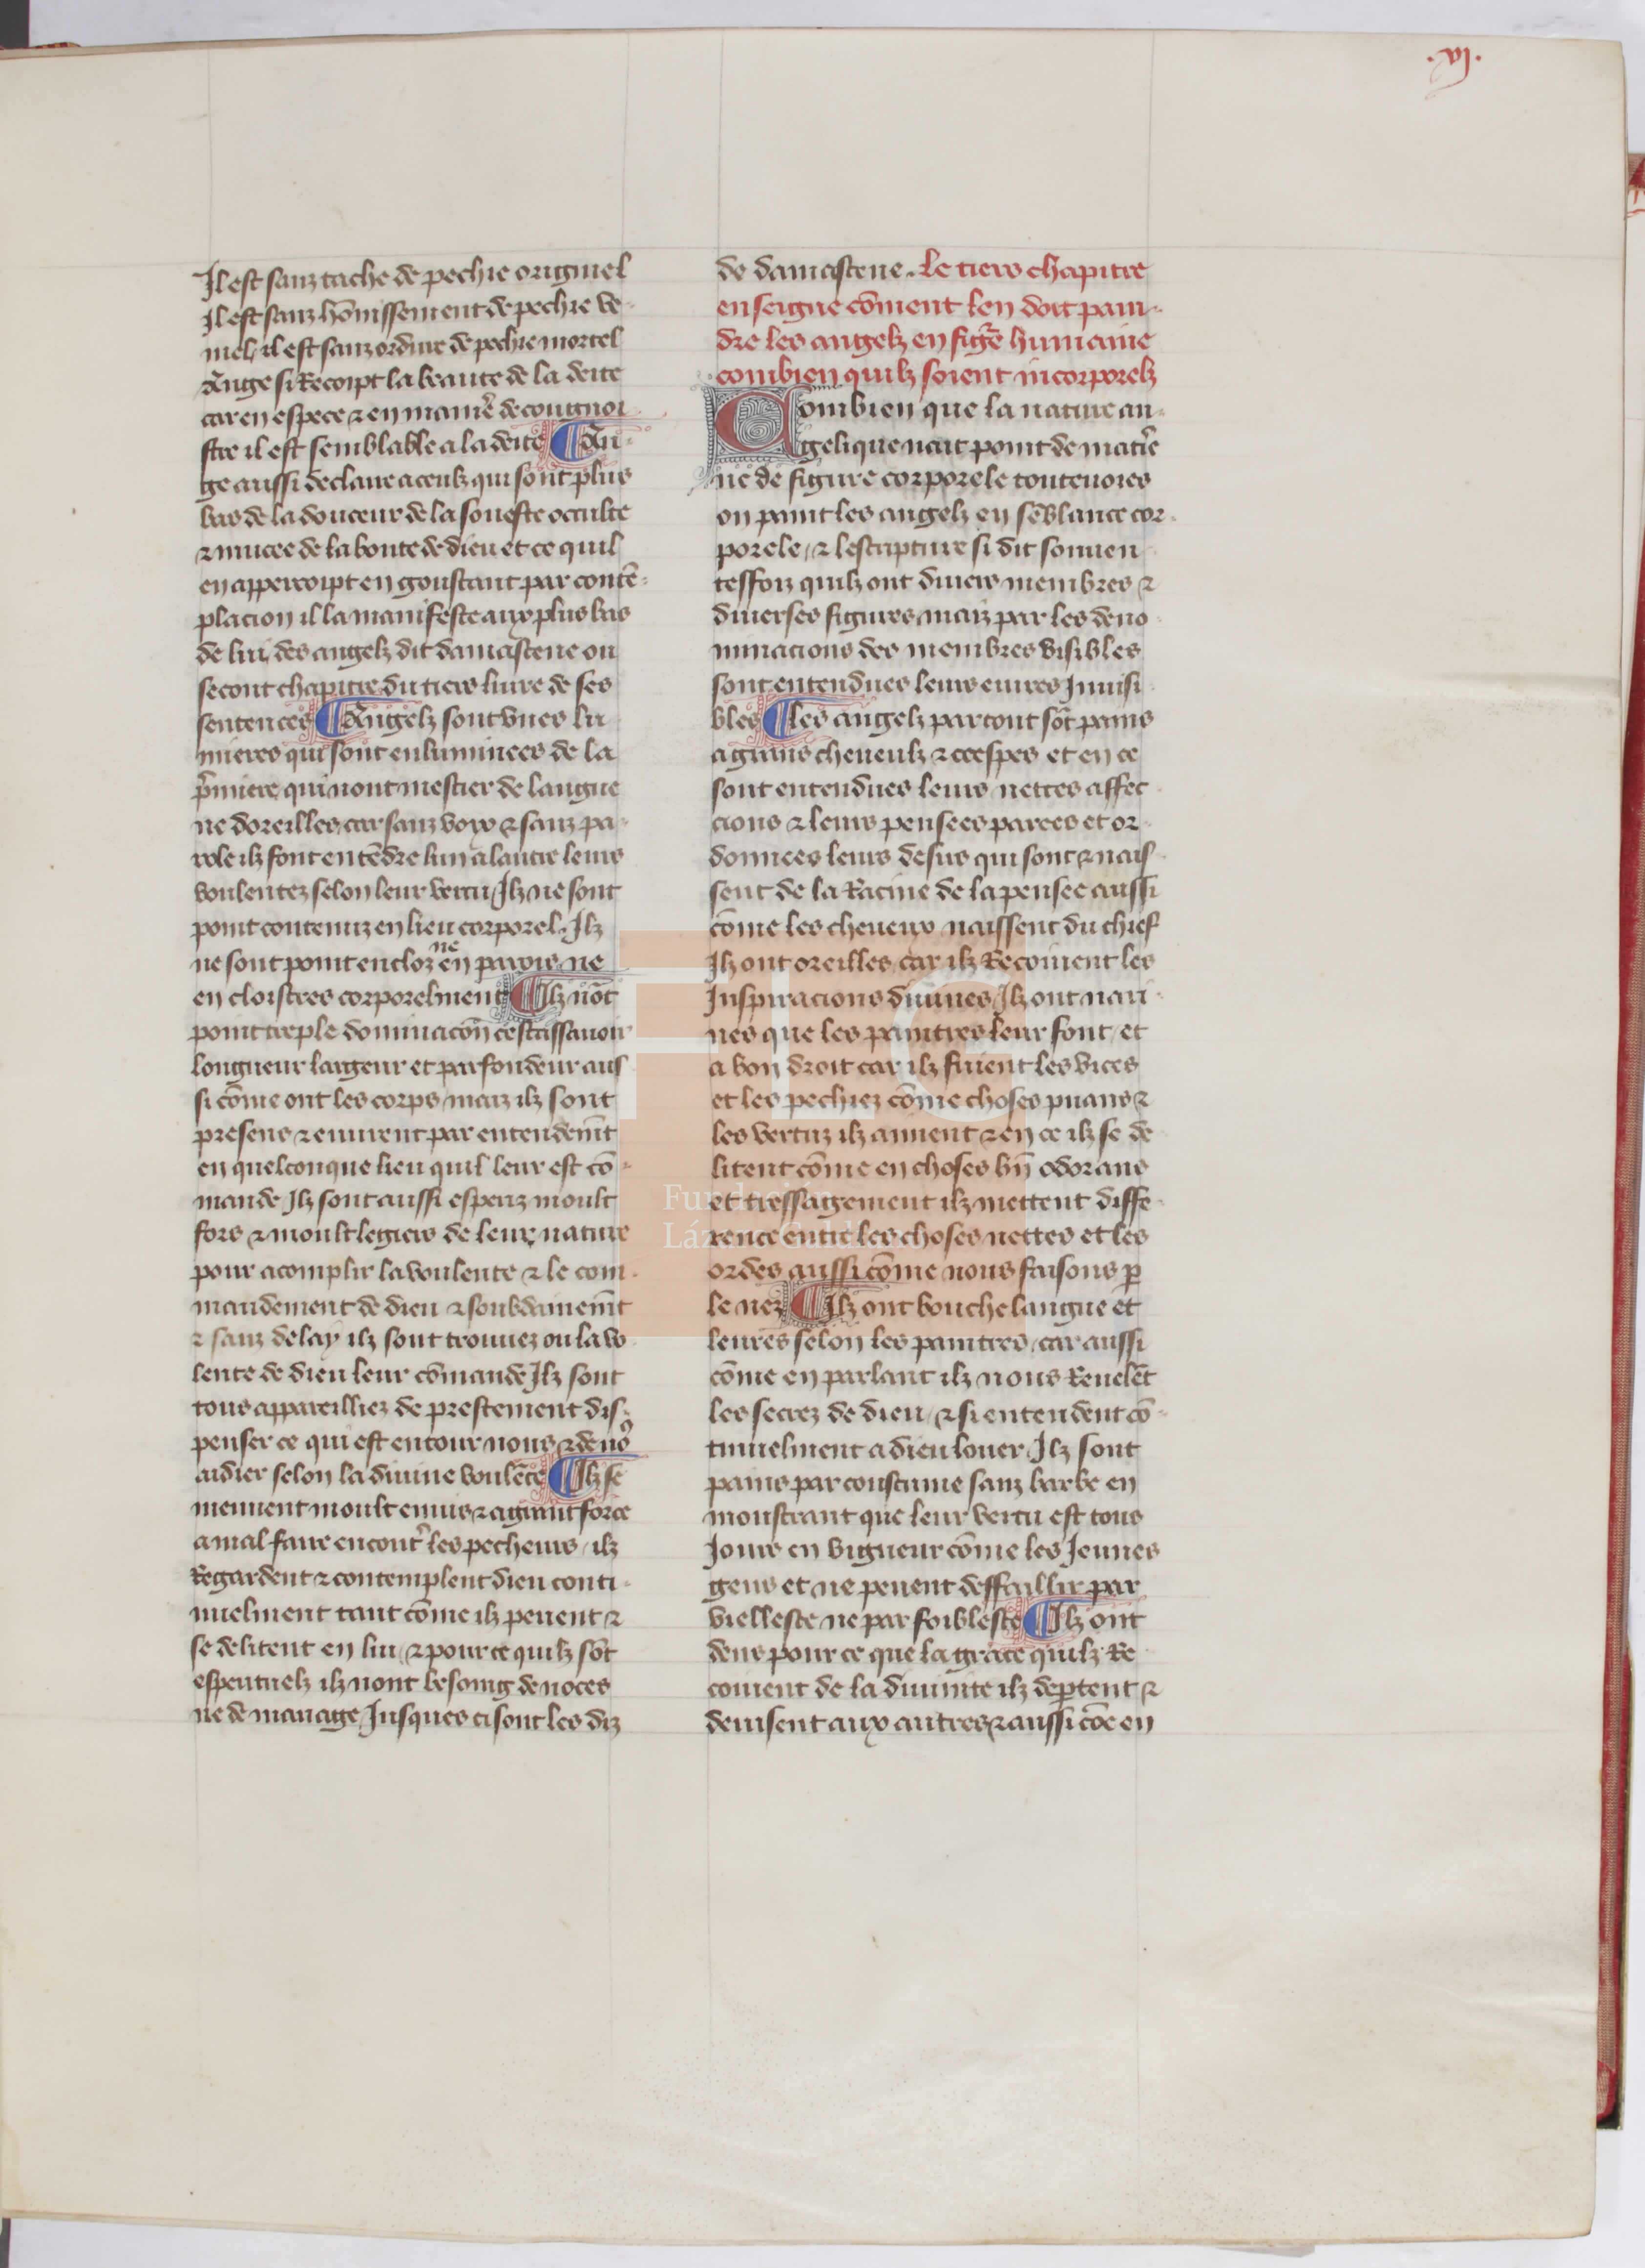 .vj.
Il est sanz tache de pechie originel
Il est sanz hōnissement de pechie ve-
niel, il est sanz ordure de pechie mortel
Ange si Recoipt la beaute de la deite
car en espece ⁊ en maniẽ de cougnoi-
stre il est semblable a la deite ¶ An-
ge aussi declaire a ceulz qui sont plus
bas de la douceur de la souefte occulte
⁊ mucee de la bonte de dieu et ce quil
en appercoipt en goustant par contē-
placion il la manifeste aux plus bas
de lui, des angelz dit damascene ou
secont chapitre du tiers liure de ses
sentences ¶ Angelz sont vnes lu
mieres qui sont enluminees de la
p̃miere, qui nont mestier de langue
ne doreilles, car sanz voix ⁊ sanz pa-
role ilz font entēdre lun a lautre leurs
voulentez selon leur vertu, Ilz ne sont
point contenuz en lieu corporel. Ilz
ne sont point encloz ne en parois ne
en cloistres corporelment ¶ Ilz nōt
point treple dominacōn cest assauoir
longueur largeur et parfondeur aus
si cōme ont les corps, maiz ilz sont
presens ⁊ euurent par entendem̄t
en quelconque lieu quil leur est cō-
mande Ilz sont aussi esperiz moult
fors ⁊ moult legiers de leur nature
pour acomplir la voulente ⁊ le com-
mandement de dieu ⁊ soubdainem̄t
⁊ sanz delay ilz sont trouuez ou la vo
lente de dieu leur cōmande Ilz sont
tous appareilliez de prestement dis-
penser ce qui est entour nous ⁊ de noꝰ
aidier selon la diuine voulēte ¶ Ilz se
meuuent moult enuis ⁊ a grant force
a mal faire encontr̃ les pecheurs, ilz
Regardent ⁊ contemplent dieu conti-
nuelment tant cōme ilz peuent ⁊
se delitent en lui, ⁊ pour ce quilz sōt
esperituelz ilz nont besoing de noces
ne de mariage, Jusques ci sont les diz
de damascene. Le tiers chapitre
enseigne cōment len doit pain-
dre les angelz en figr̃e humaine
combien quilz soient incorporelz
Combien que la nature an-
gelique nait point de matir̃e
ne de figure corporele toutenoies
on paint les angelz en sēblance cor-
porele, ⁊ lescripture si dit souuen
teffoiz quilz ont diuers membres ⁊
diuerses figures, maiz par les deno
minacions des membres visibles
sont entendues leurs euures Inuisi
bles ¶ Les angelz partout sōt pains
a grans cheueulz ⁊ crespes et en ce
sont entendues leurs nettes affec
cions ⁊ leurs pensees parees et or-
donnees leurs desirs qui sont ⁊ nais
sent de la Racine de la pensee aussi
cōme les cheueux naissent du chief
Ilz ont oreilles, car ilz Recoiuent les
Inspiracions diuines, Ilz ont nari-
nes que les paintres leur font, et
a bon droit car ilz fuient les vices
et les pechiez cōme choses puans ⁊
les vertuz ilz aiment ⁊ en ce ilz se de
litent cōme en choses bn̄ odorans
et tressagement ilz mettent diffe-
rence entre les choses nettes et les
ordes aussi cōme nous faisons ꝑ
le nez ¶ Ilz ont bouche langue et
leures selon les paintres, car aussi
cōme en parlant ilz nous Reuelēt
les secrez de dieu, ⁊ si entendent cō-
tinuelment a dieu louer, Ilz sont
pains par coustume sanz barbe en
monstrant que leur vertu est tous
Jours en vigueur cōme les Jeunes
gens et ne peuent deffaillir par
viellesce ne par foiblesce ¶ Ilz ont
dens pour ce que la grace quilz Re
coiuent de la diuinite ilz deꝑtent ⁊
deuisent aux autres ⁊ aussi cōe en
Fundación
Lázaro Galdiano